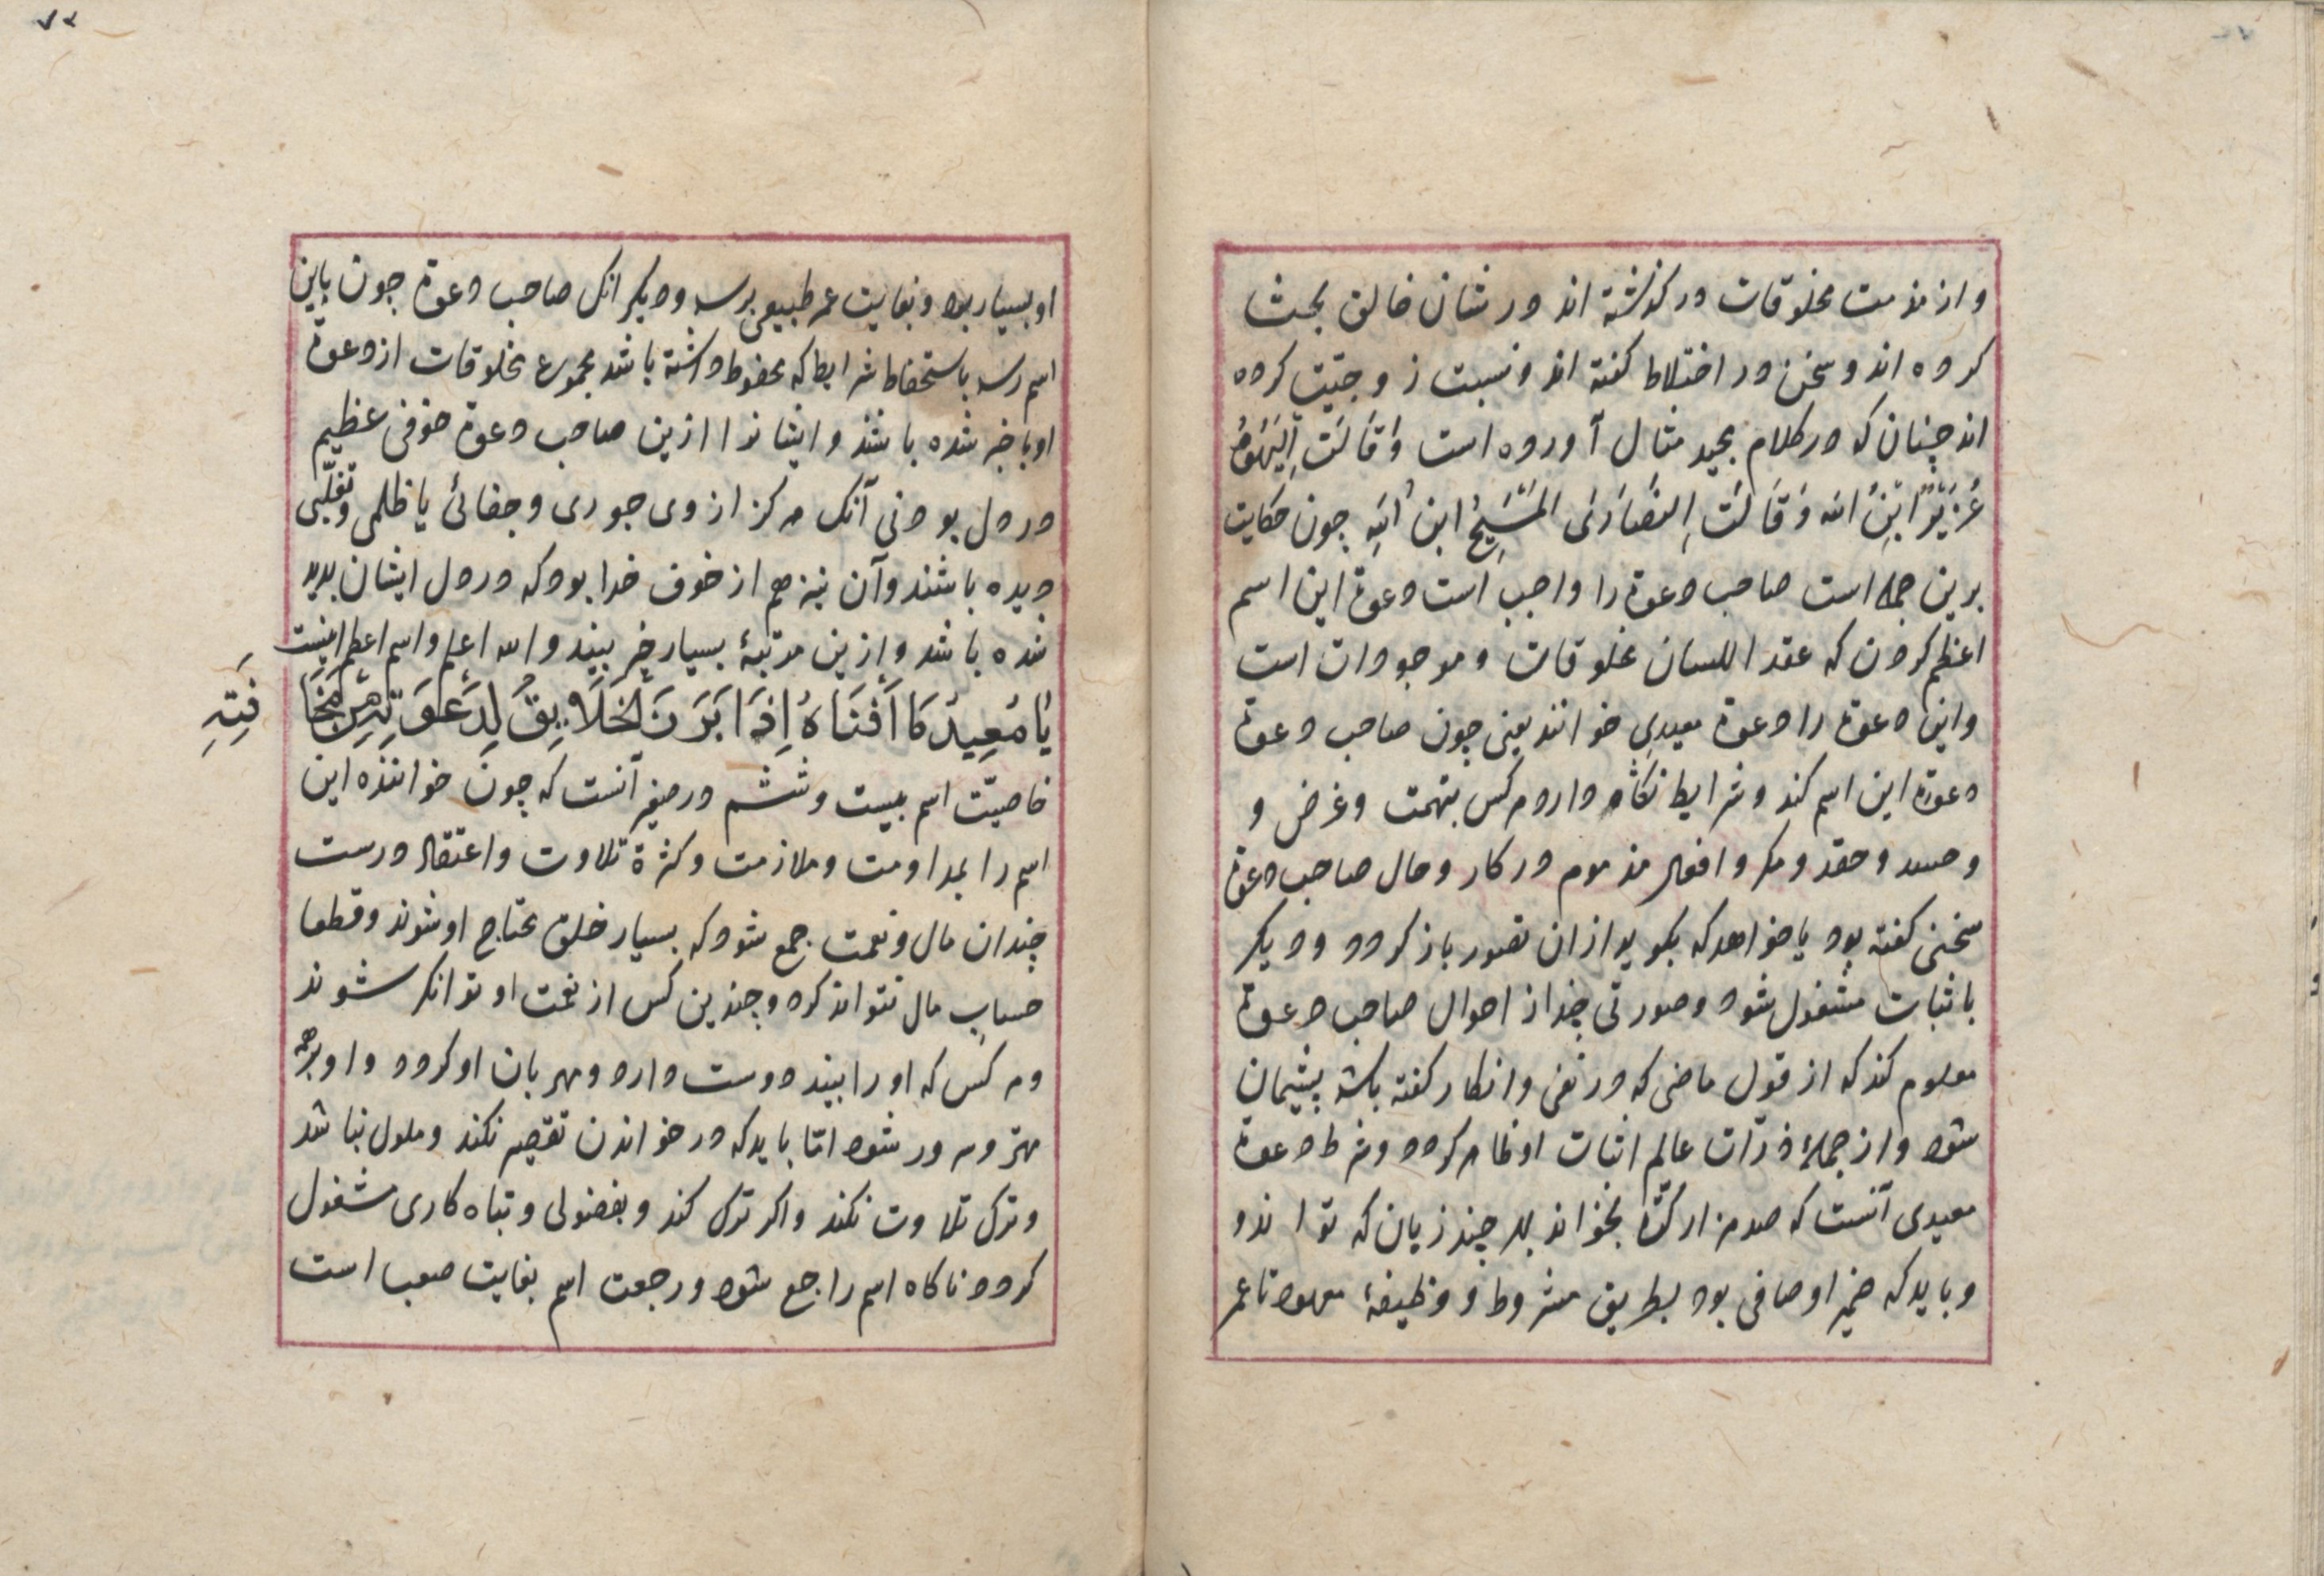 و از مذمت مخلوقات در کذشته اند در شان خالق بحث
کرده اند و سخن در اختلاط کفته اند و نسبت زوجیّت کرده
اند چنان که در کلام مجید مثال آورده است وَقَالَتِ الْیَهُودُ
عُزَیْرٌ ابْنُ الله وَقَالَتِ النَّصَارَی الْمَسِیحُ ابن اللهِ چون حکایت
برین جمله است صاحب دعوة را واجب است دعوة این اسم
اعظم کردن که عقد اللسان مخلوقات و موجودات است
و این دعوة را دعوة معیدی خوانند یعنی چون صاحب دعوة
دعوة این اسم کند و شرایط نکاه دارد هر کس بتهمت و غرض و
و حسد و حقد و مکر و افعال مذموم در کار و حال صاحب دعوة
سخنی کفته بود یا خواهد که بکوید از ان تصور باز کردد و دیکر
باثبات مشغول شود و صورتی چند از احوال صاحب دعوة
معلوم کند که از قول ماضی که در نفی و انکار کفته باشد پشیمان
شود و از جملهٔ ذرّات عالم اثبات او ظاهر کردد و شرط دعوة
معیدی آنست که صد هزار کرّة بخواند بهر چند زبان که تواند و
و باید که ضمیر او صافی بود بطریق مشروط و وظیفهٔ معهود تا عمر
۷۲
او بسیار بود و بغایت عمر طبیعی برسد و دیکر انک صاحب دعوة چون باین
اسم رسد باستحفاظ شرایط که محفوظ داشته باشد مجموع مخلوقات از دعوة
او با خبر شده باشند و ایشانرا ازین صاحب دعوة خوفی عظیم
در دل بود نی آنک هرکز از وی جوری و جفائی یا ظلمی و تغلّبی
دیده باشند و آن نیز هم از خوف خدا بود که در دل ایشان پدید
شده باشد و ازین مرتبهٔ بسیار خیر بیند و الله اعلم و اسم اعظم اینست
یَا مُعِیدُ مَا اَفْنَاهُ اِذَا بَرَزَ الْخَلَایِقُ لِدَعْوَتِهِ مِنْ مَخَا
فَتِهِ
خاصیّت اسم بیست و ششم در صغیر آنست که چون خواننده این
اسم را بمداومت و ملازمت و کثرة تلاوت و اعتقاد درست
چندان مال و نعمت جمع شود که بسیار خلق محتاج او شوند و قطعا
حساب مال نتواند کرد و چندین کس از نعمت او توانکر شوند
و هر کس که او را بیند دوست دارد و مهربان او کردد و او بر همه
مهتر و سرور شود امّا باید که در خواندن تقصیر نکند و ملول نباشد
و ترک تلاوت نکند و اکر ترک کند و بفضولی و تباه کاری مشغول
کردد ناکاه اسم راجع شود و رجعت اسم بغایت صعب است